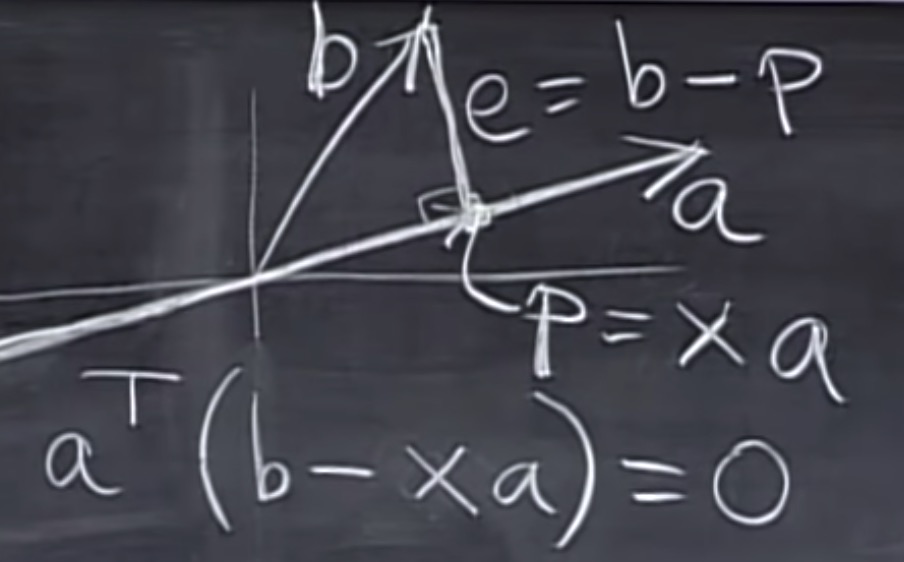 b
e = b - p
a
p = x a
aᵀ (b - x a) = 0